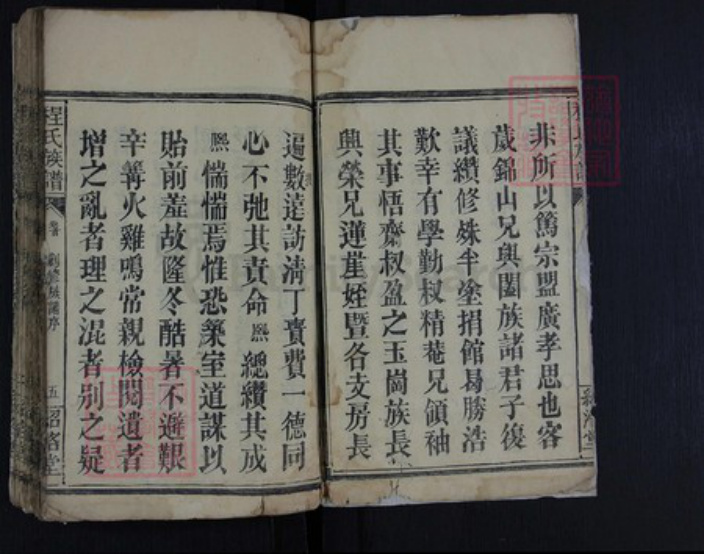 非所以篤宗盟廣孝思也客
歲錦山兄與闔族諸君子復
議纘修殊半塗捐館曷勝浩
歎幸有學勤叔精菴兄領袖
其事悟齋叔盈之玉崗族長
興榮兄蓮崖姪暨各支房長
遍數達訪淸丁實費一德同
心不弛其責命熙總纘其成
熙惴惴焉惟恐築室道謀以
貽前羞故隆冬酷暑不避艱
辛篝火雞鳴常親檢閱遺者
增之亂者理之混者別之疑
程氏族譜
五